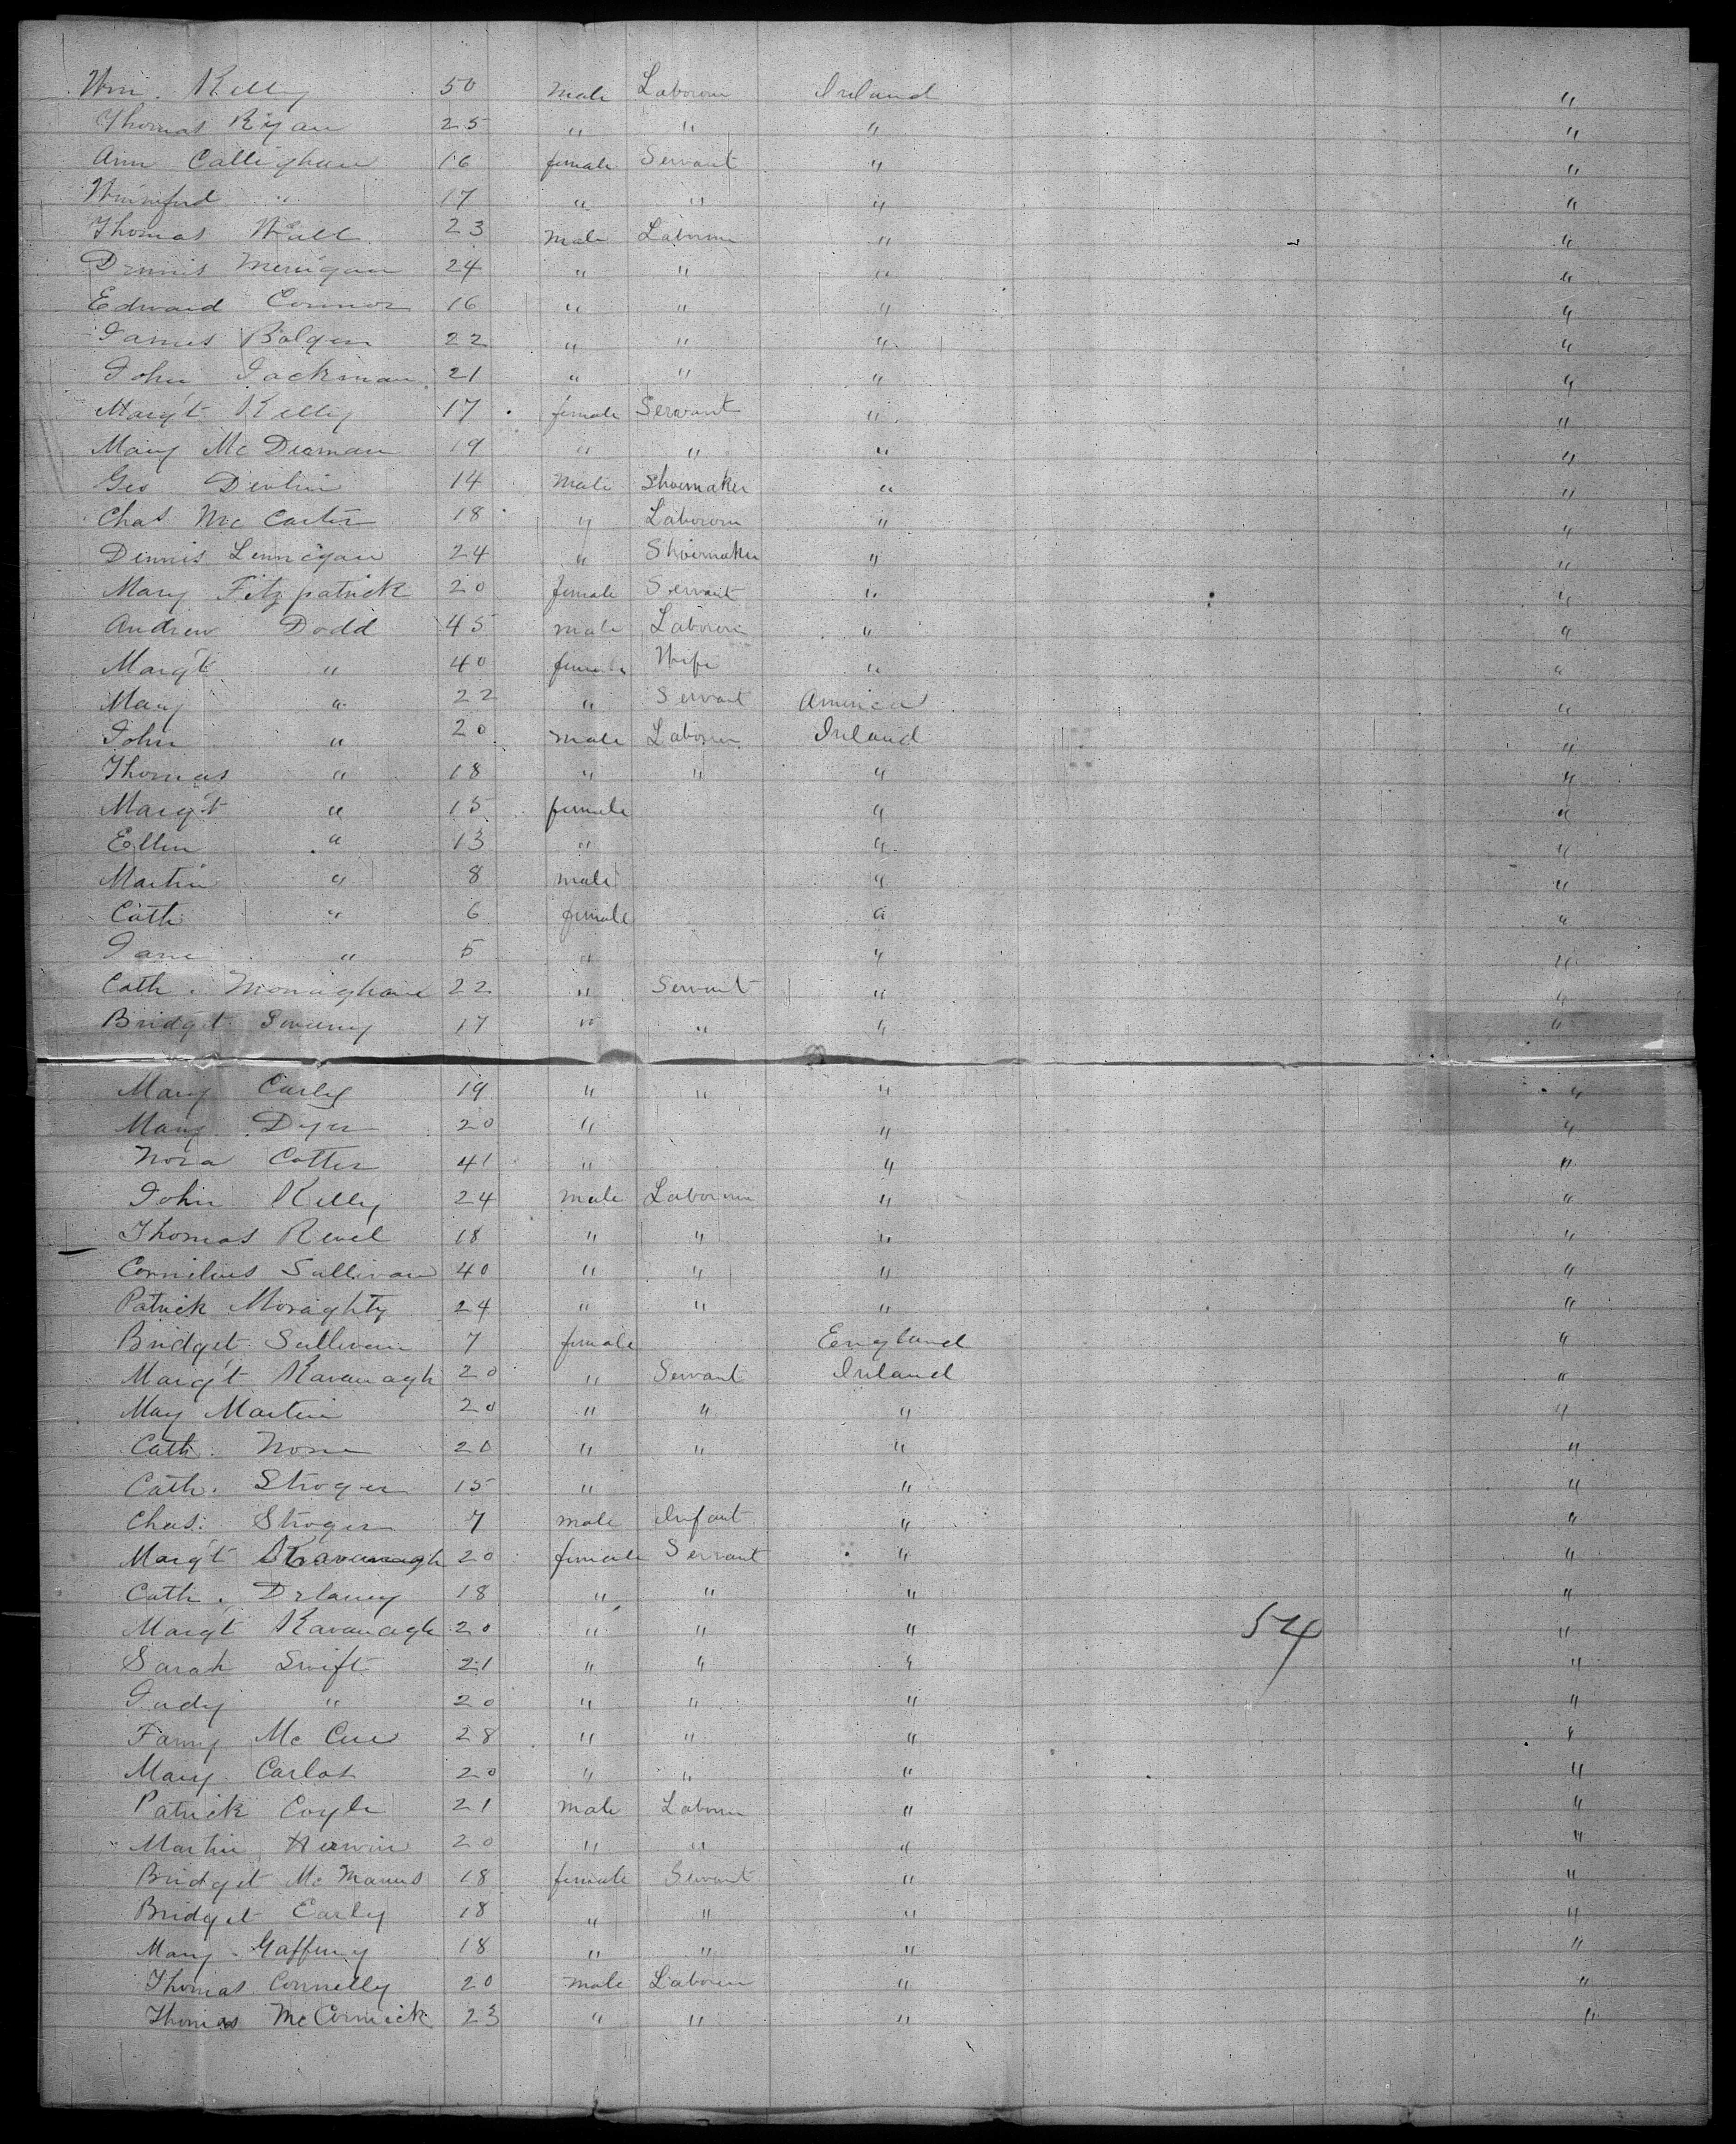 Wm. Kelly 50 male Laborour Ireland "
Thomas Ryan 25 " " " "
Ann Callighan 16 female Servant " "
Winnifred " 17 " " " "
Thomas Wall 23 male Laborour " "
Dennis Merrigan 24 " " " "
Edward Connor 16 " " " "
James Bolger 22 " " " "
John Jackman 21 " " " "
Marg't Kelly 17 female Servant " "
Mary Mc Dearman 19 " " " "
Geo Devlin 14 male Shoemaker " "
Chas Mc Carten 18 " Laborour " "
Dennis Lennegan 24 " Shoemaker " "
Mary Fitzpatrick 20 female Servant " "
Andrew Dodd 45 male Laborour " "
Marg't " 40 female Wife " "
Mary " 22 " Servant America "
John " 20 male Laborer Ireland "
Thomas " 18 " " " "
Marg't " 15 female " "
Ellen " 13 " " "
Martin " 8 male " "
Cath " 6 female " "
Jane " 5 " " "
Cath. Monaghan 22 " Servant " "
Bridget 17 " " " "
Mary Curley 19 " " " "
Mary Dyer 20 " " "
Nora Cotter 41 " " "
John Kelly 24 male Laborour " "
Thomas Revel 18 " " " "
Cornelius Sullivan 40 " " " "
Patrick Moraghty 24 " " " "
Bridget Sullivan 7 female England "
Marg't Kavanagh 20 " Servant Ireland "
May Martin 20 " " " "
Cath. 20 " " " "
Cath. Stroger 15 " " "
Chas. Stroger 7 male Infant " "
Marg't Kavanagh 20 female Servant " "
Cath. Delaney 18 " " " "
Margt Kavanagh 20 " " " 54 "
Sarah Swift 21 " " " "
Judy " 20 " " " "
Fanny Mc Cue 28 " " " "
Mary Carlos 20 " " " "
Patrick Coyle 21 male Laborer " "
Martin 20 " " " "
Bridget McManus 18 female Servant " "
Bridget Early 18 " " " "
Mary Gaffney 18 " " " "
Thomas Connelly 20 male Laborer " "
Thomas McCormick 23 " " " "